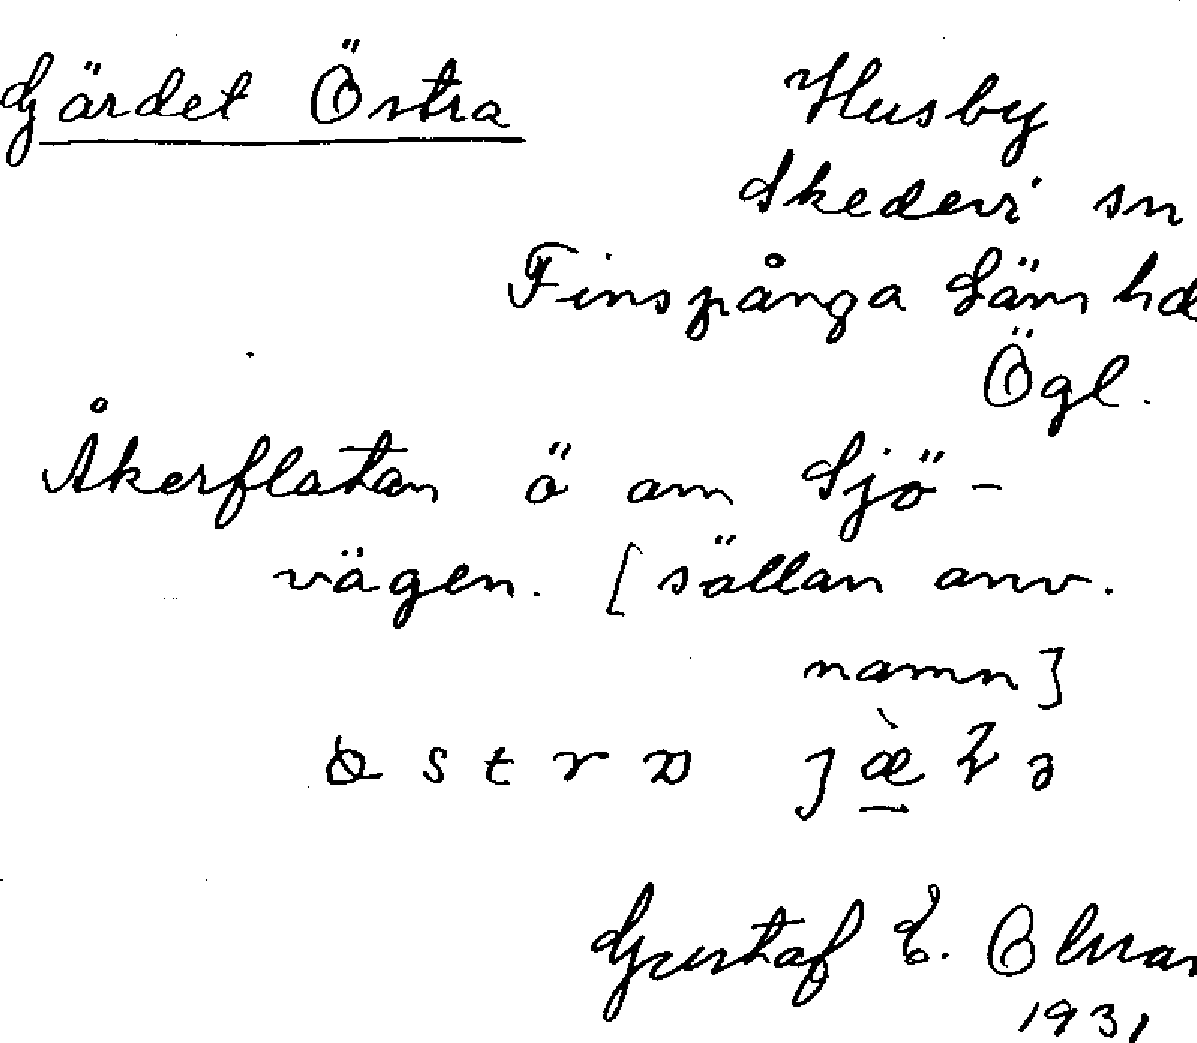 Gärdet Östra Husby
Skedevi sn
Finspånga Läns hd
Ögl.
Åkerflatan ö om Sjö-
vägen. [sällan anv.
namn]
Gustaf E.
1931